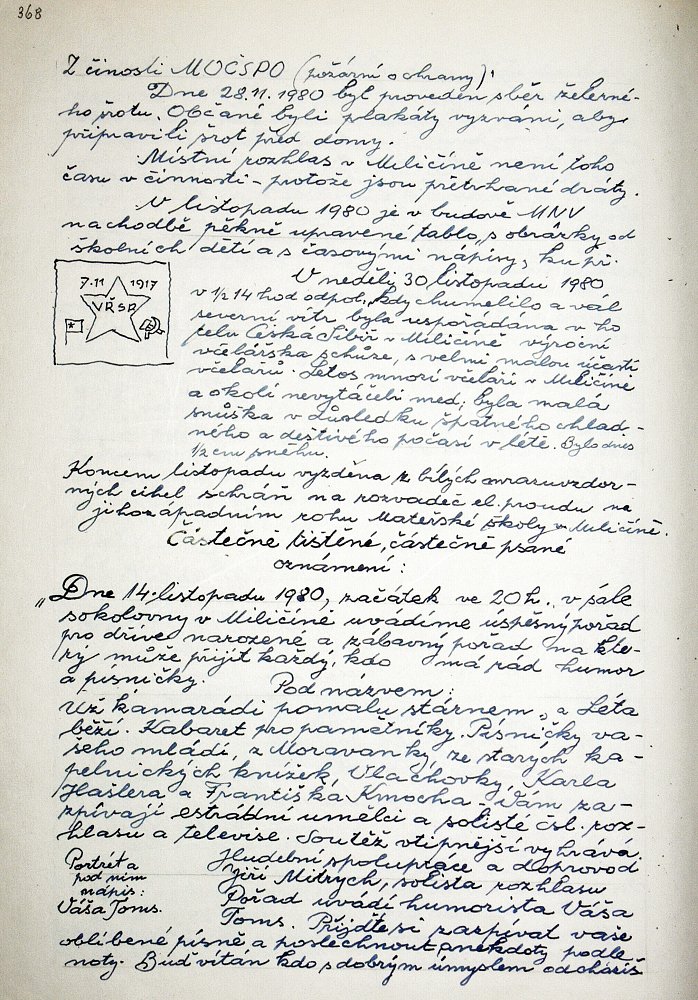 368
Z činosti MOČSPO (požární ochrany).
Dne 28.11. 1980 byl proveden sběr železné-
ho šrotu. Občané byli plakáty vyzváni, aby
připravili šrot před domy.
Místní rozhlas v Miličíně není toho
času v činnosti - protože jsou přetrhané dráty.
V listopadu 1980 je v budově MNV
na chodbě pěkně upravené tablo, s obrázky od
školních dětí a s časovými nápisy, ku př.
7.11 1917
VŘSR
V neděli 30 listopadu 1980
v 1/2 14 hod odpol., kdy chumelilo a vál
severní vítr byla uspořádána v ho
telu Česká Sibiř v Miličíně výroční
včelářská schůze, s velmi malou účastí
včelařů. Letos mnozí včelaři v Miličíně
a okolí nevytáčeli med; byla malá
snůška v důsledku špatného chlad-
ného a deštivého počasí v létě. Bylo dnes
1/2 cm sněhu.
Koncem listopadu vyzděna z bílých mrazuvzdor-
ných cihel schráň na rozvaděč el. proudu na
jihozápadním rohu Mateřské školy v Miličíně.
Částečně tištené, částečně psané
oznámení:
„Dne 14. listopadu 1980, začátek ve 20 h. v sále
sokolovny v Miličíně uvádíme úspěsný pořad
pro dříve narozené a zábavný pořad na kte-
rý může přijít každý, kdo má rád humor
a písničky. Pod názvem:
Už kamarádi pomalu stárnem „a Léta
běží. Kabaret pro pamětníky. Písničky va-
šeho mládí, z Moravanky, ze starých ka-
pelnických knížek, Vlachovky, Karla
Hašlera a Františka Kmocha - Vám za-
zpívají estrádní umělci a solisté čsl. roz-
hlasu a televise. Soutěž vtipnější vyhrává.
Hudební spolupráce a doprovod
Jiří Mitrych, solista rozhlasu
Pořad uvádí humorista Váša
Toms. Přijďte si zazpívat vaše
Portrét a
pod ním
nápis:
Váša Toms.
oblíbené písně a poslechnout anekdoty podle
noty. Buď vítán kdo s dobrým úmyslem odcházíš